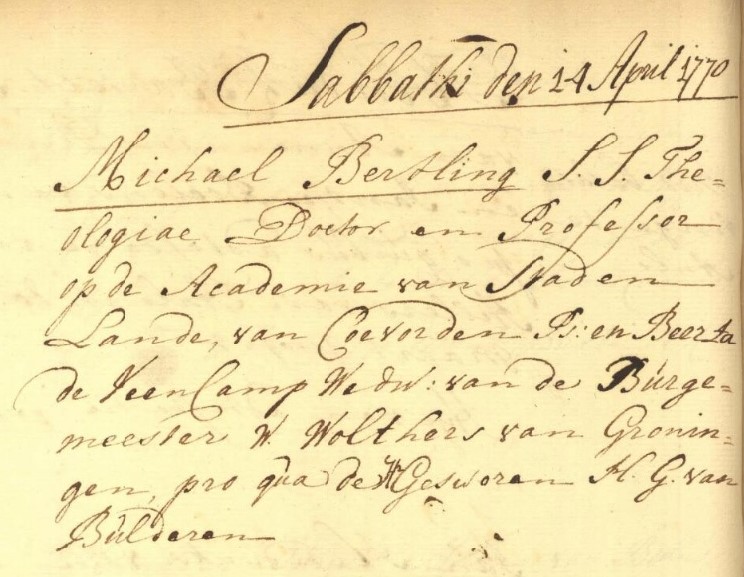 Sabbathi den 14 April 1770
Michael Bertling S. S. The=
ologiae Doctor en Professor
op de Academie van Stad en
Lande, van Coevorden Ps: en Beerta
de Veencamp Wedw: van de Burge=
meester W. Wolthers van Gronin=
gen, pro qua de H Gesworen H. G. van
Bulderen